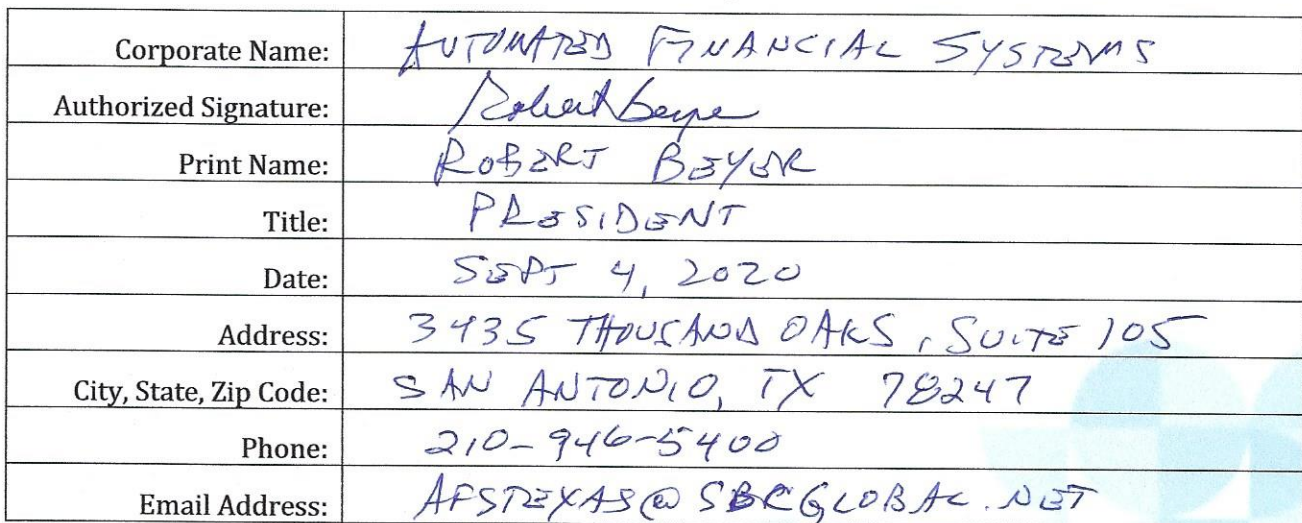 Corporate Name: AUTOMATED FINANCIAL SYSTEMS
Authorized Signature: Robert Beyer
Print Name: ROBERT BEYER
Title: PRESIDENT
Date: SEPT 4, 2020
Address: 3435 THOUSAND OAKS, SUITE 105
City, State, Zip Code: SAN ANTONIO, TX 78247
Phone: 210-946-5400
Email Address: AFSTEXAS@SBCGLOBAL.NET